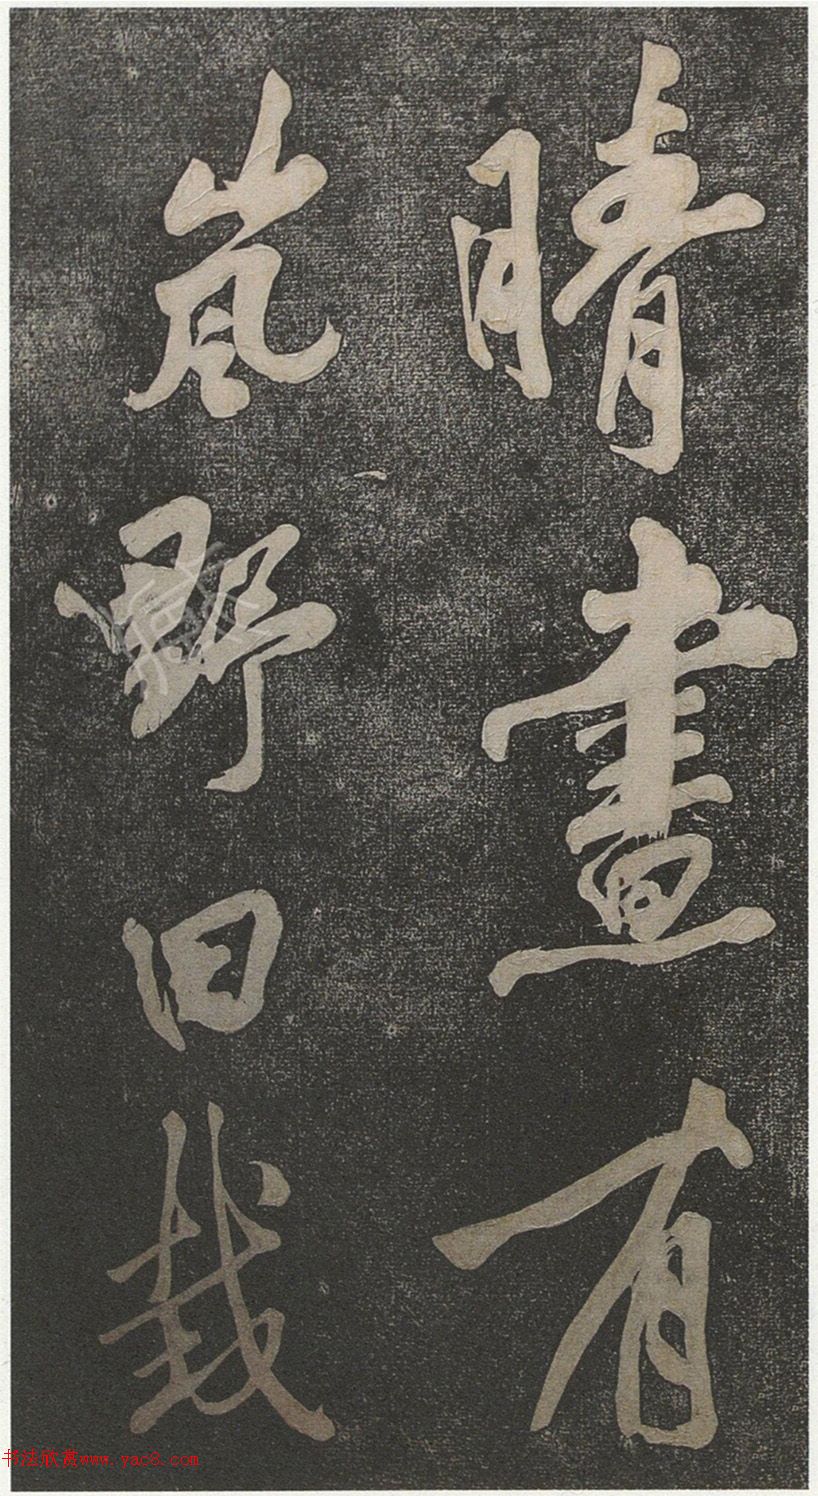 晴晝有
嵐野日
书法欣赏www.yac8.com